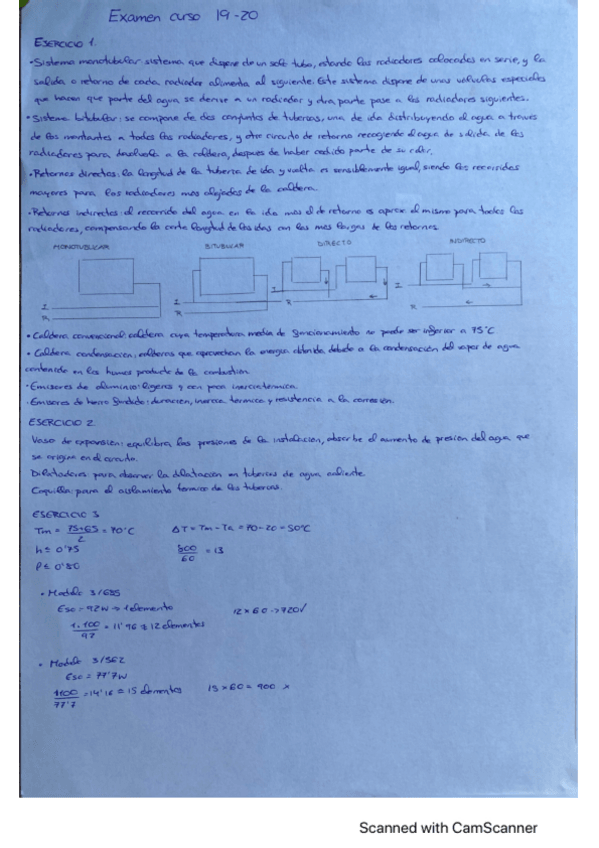 Examen curso 19-20
EJERCICIO 1.
• Sistema monotubular: sistema que dispone de un solo tubo, estando los radiadores colocados en serie, y la
salida o retorno de cada radiador alimenta al siguiente. Este sistema dispone de unas valvulas especiales
que hacen que parte del agua se derive a un radiador y otra parte pase a los radiadores siguientes.
• Sistema bitubular: se compone de dos conjuntos de tuberias, una de ida distribuyendo el agua a traves
de los montantes a todos los radiadores, y otro circuito de retorno recogiendo el agua de salida de los
radiadores para devolverla a la caldera, despues de haber cedido parte de su calor.
• Retornos directos: la longitud de la tuberia de ida y vuelta es sensiblemente igual, siendo los recorridos
mayores para los radiadores mas alejados de la caldera.
• Retornos indirectos: el recorrido del agua en la ida mas el de retorno es aprox el mismo para todos los
radiadores, compensando la corta longitud de las idas con las mas largas de los retornos.
MONOTUBULAR BITUBULAR DIRECTO INDIRECTO
I R I R I R I R
• Caldera convencional: caldera cuya temperatura media de funcionamiento no puede ser inferior a 75°C
• Caldera condensacion: calderas que aprovechan la energia obtenida debido a la condensación del vapor de agua
contenido en los humos producto de la combustion
• Emisores de aluminio: ligeros y con poca inercia termica.
• Emisores de hierro fundido: duracion, inercia termica y resistencia a la corrosión.
EJERCICIO 2.
Vaso de expansion: equilibra las presiones de la instalacion, absorbe el aumento de presion del agua que
se origina en el circuito.
Dilatadores: para absorver la dilatacion en tuberias de agua caliente.
Coquilla: para el aislamiento termico de las tuberias.
EJERCICIO 3
Tm = 75+65/2 = 70°C ΔT = Tm - Ta = 70-20 = 50°C
h ≤ 0'75 800/60 = 13
P ≤ 0'80
• Modelo 3/685
E50 = 92W → 1 elemento 12 x 60 → 720 ✓
1.100/92 = 11'96 ≈ 12 elementos
• Modelo 3/562
E50 = 77'7W
1100/77'7 = 14'16 ≈ 15 elementos 15 x 60 = 900 x
Scanned with CamScanner